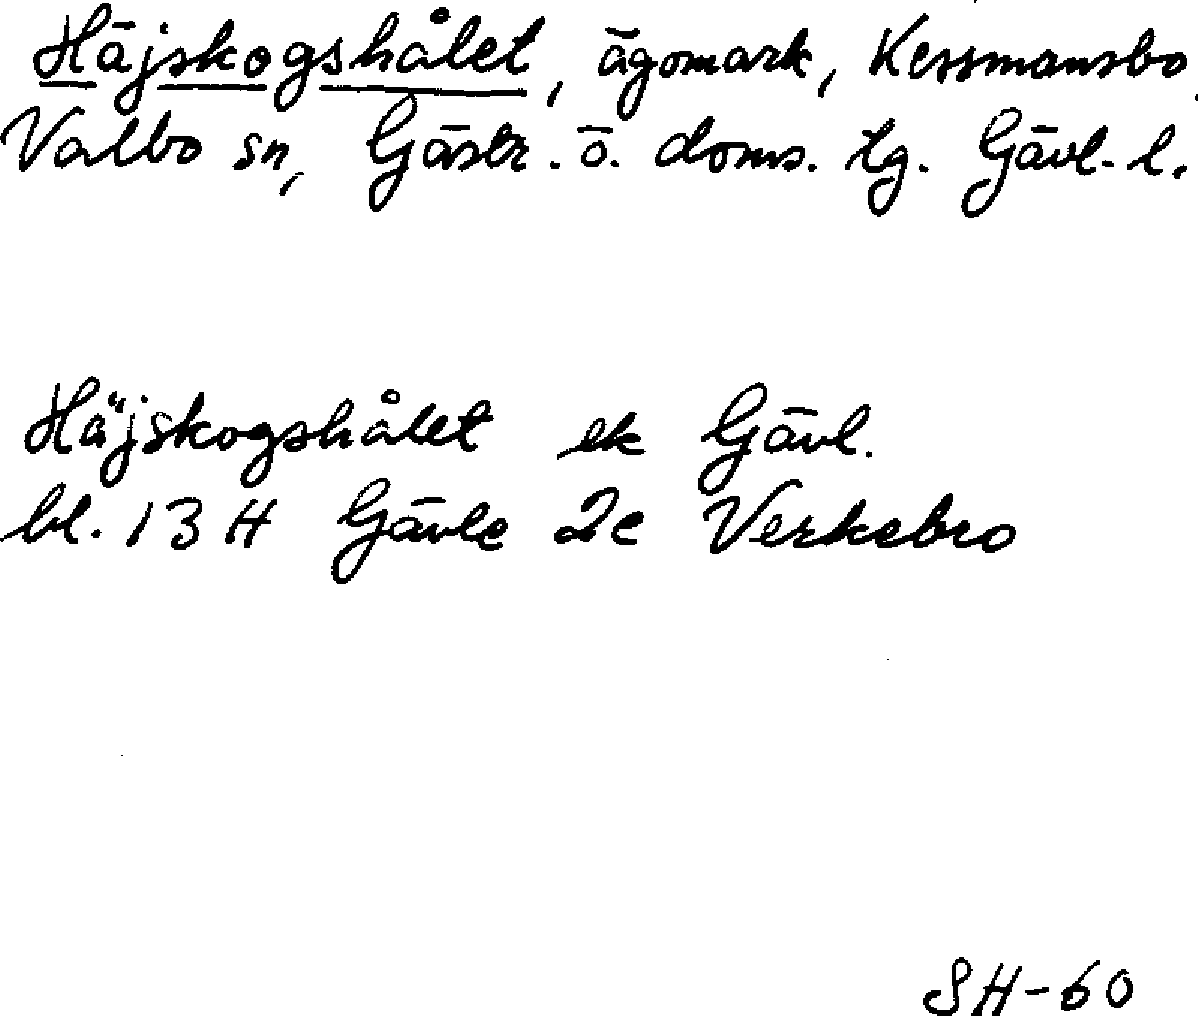 Häjskogshålet, ägomark, Kessmansbo
Valbo sn, Gästr. ö. doms. tg. Gävl. l.
Häjskogshålet ek Gävl.
bl. 13 H Gävle 2c Verkebro
SH-60